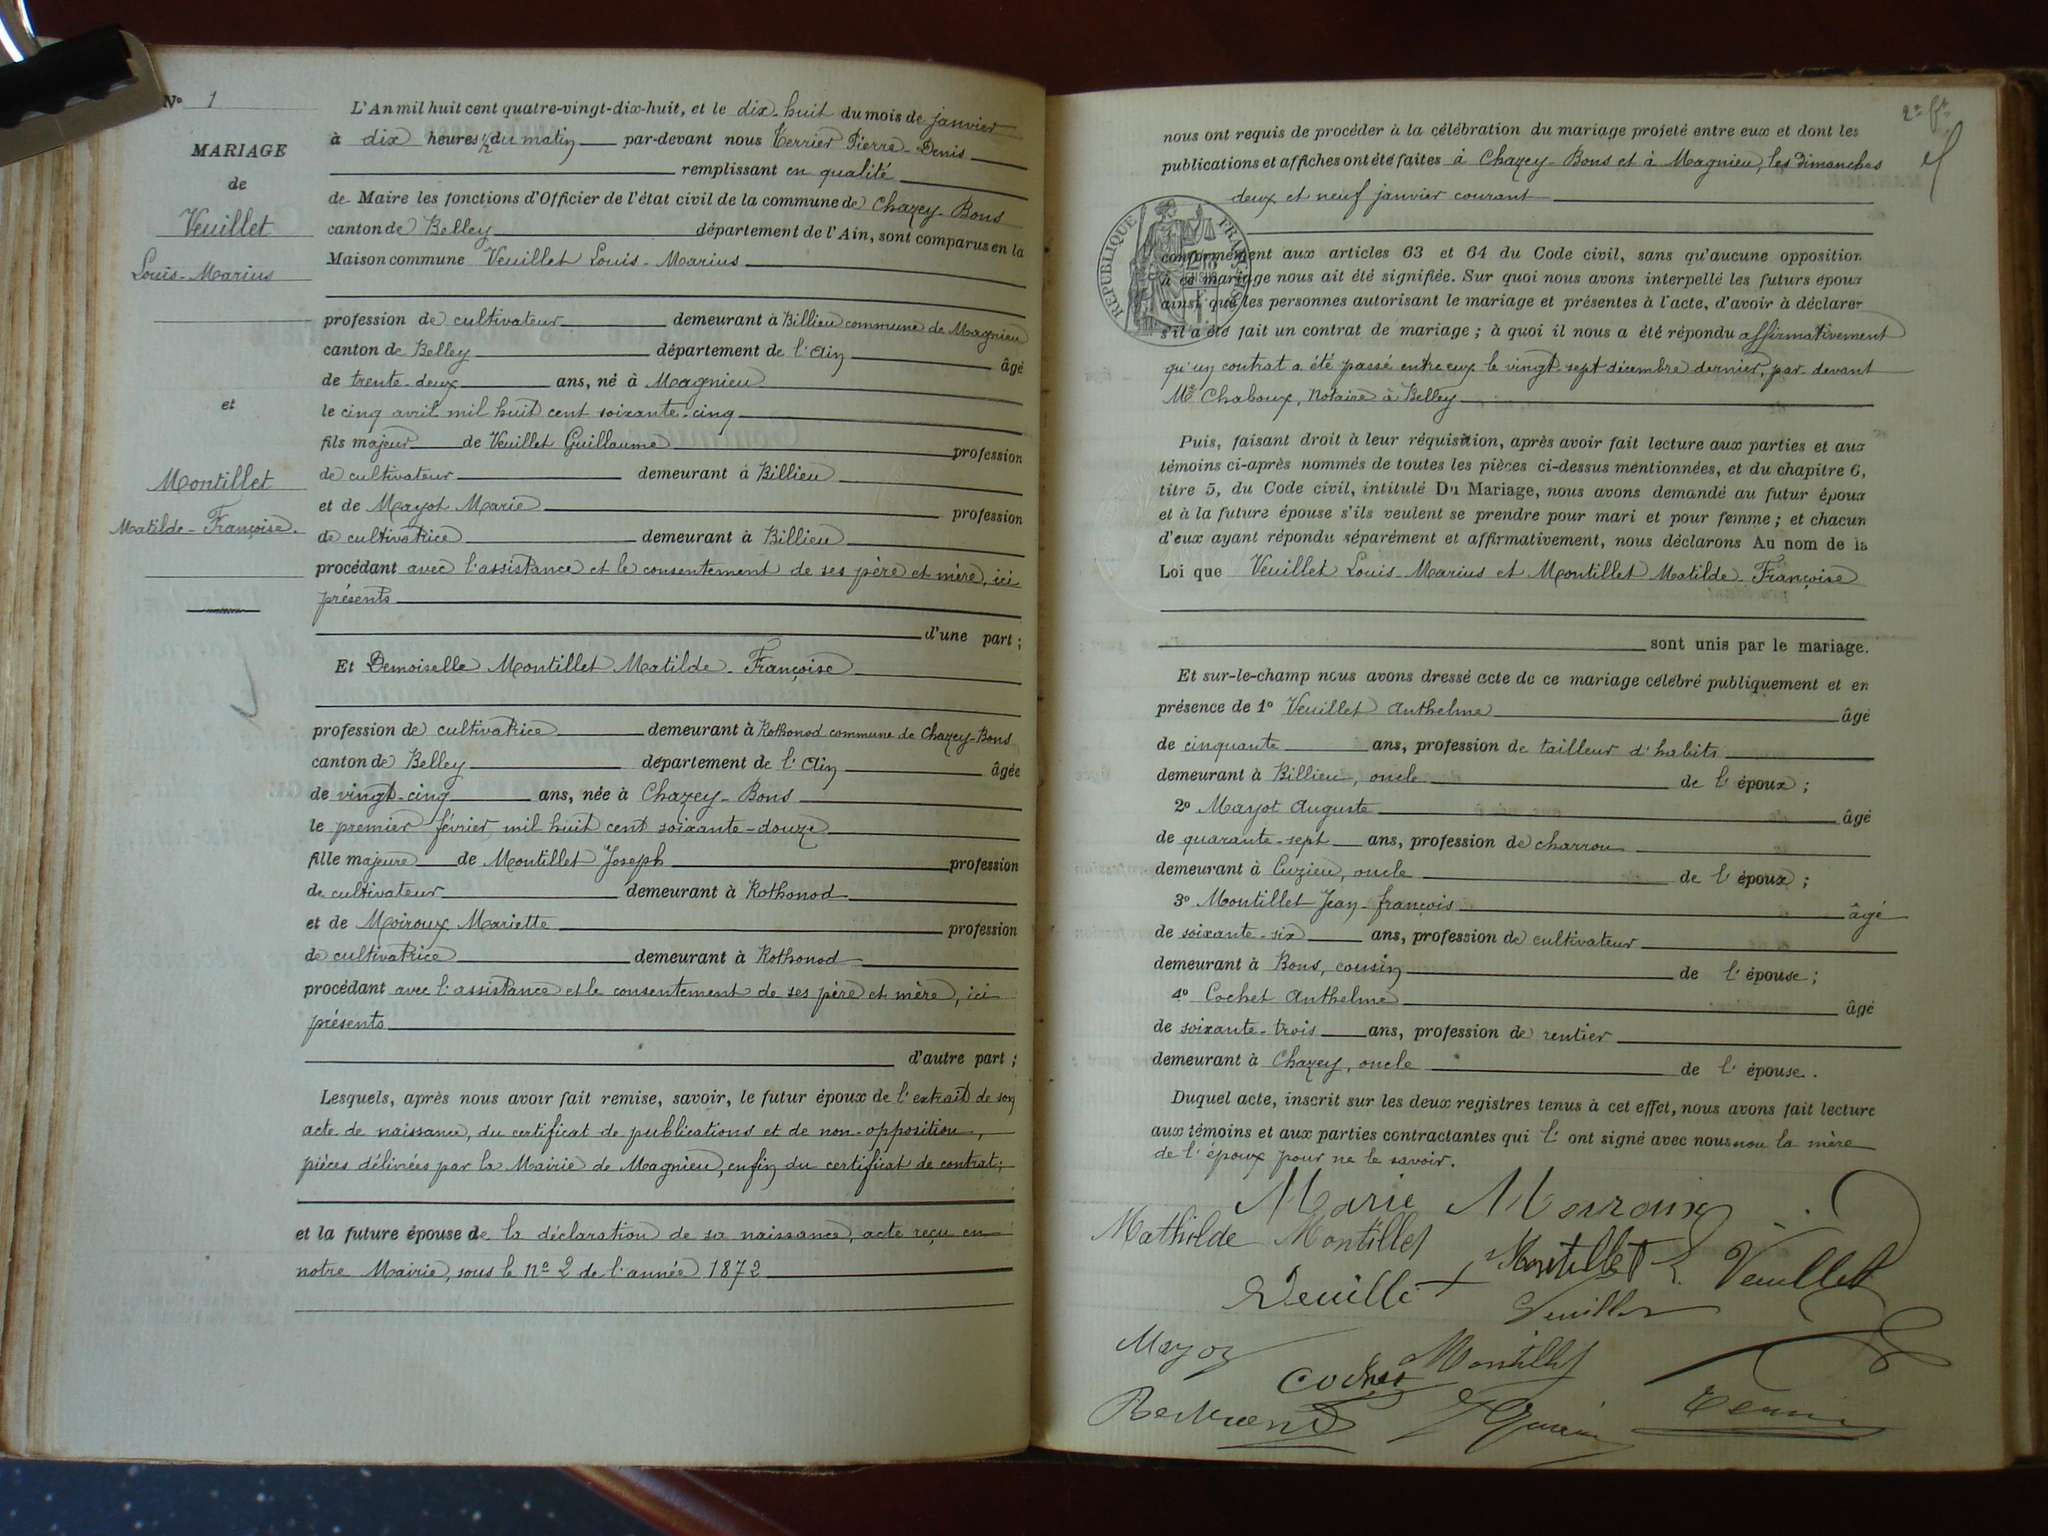 N° 1
MARIAGE
de
Veuillet
Louis-Marius
et
Montillet
Matilde-Françoise.
L'An mil huit cent quatre-vingt-dix-huit, et le dix-huit du mois de janvier
à dix heures 1/2 du matin par-devant nous Terrier Pierre-Denis
remplissant en qualité
de Maire les fonctions d'Officier de l'état civil de la commune de Chazey-Bons
canton de Belley département de l'Ain, sont comparus en la
Maison commune Veuillet Louis-Marius
profession de cultivateur demeurant à Billieu commune de Magnieu
canton de Belley département de l'Ain âgé
de trente-deux ans, né à Magnieu
le cinq avril mil huit cent soixante-cinq
fils majeur de Veuillet Guillaume profession
de cultivateur demeurant à Billieu
et de Mayot Marie profession
de cultivatrice demeurant à Billieu
procédant avec l'assistance et le consentement de ses père et mère, ici
présents
d'une part ;
Et Demoiselle Montillet Matilde-Françoise
profession de cultivatrice demeurant à Rothonod commune de Chazey-Bons
canton de Belley département de l'Ain âgée
de vingt-cinq ans, née à Chazey-Bons
le premier février mil huit cent soixante-douze
fille majeure de Montillet Joseph profession
de cultivateur demeurant à Rothonod
et de Moiroux Mariette profession
de cultivatrice demeurant à Rothonod
procédant avec l'assistance et le consentement de ses père et mère, ici
présents
d'autre part ;
Lesquels, après nous avoir fait remise, savoir, le futur époux de l'extrait de son
acte de naissance, du certificat de publications et de non-opposition,
pièces délivrées par la Mairie de Magnieu, enfin du certificat de contrat;
et la future épouse de la déclaration de sa naissance, acte reçu en
notre Mairie, sous le n° 2 de l'année 1872
nous ont requis de procéder à la célébration du mariage projeté entre eux et dont les
publications et affiches ont été faites à Chazey-Bons et à Magnieu, les Dimanches
deux et neuf janvier courant
REPUBLIQUE FRANÇAISE
conformément aux articles 63 et 64 du Code civil, sans qu'aucune opposition
à ce mariage nous ait été signifiée. Sur quoi nous avons interpellé les futurs époux
ainsi que les personnes autorisant le mariage et présentes à l'acte, d'avoir à déclarer
s'il a été fait un contrat de mariage ; à quoi il nous a été répondu affirmativement
qu'un contrat a été passé entre eux le vingt-sept décembre dernier, par devant
Me Chaboux, Notaire à Belley
Puis, faisant droit à leur réquisition, après avoir fait lecture aux parties et aux
témoins ci-après nommés de toutes les pièces ci-dessus mentionnées, et du chapitre 6,
titre 5, du Code civil, intitulé Du Mariage, nous avons demandé au futur époux
et à la future épouse s'ils veulent se prendre pour mari et pour femme ; et chacun
d'eux ayant répondu séparément et affirmativement, nous déclarons Au nom de la
Loi que Veuillet Louis-Marius et Montillet Matilde-Françoise
sont unis par le mariage.
Et sur-le-champ nous avons dressé acte de ce mariage célébré publiquement et en
présence de 1° Veuillet Anthelme âgé
de cinquante ans, profession de tailleur d'habits
demeurant à Billieu, oncle de l'époux ;
2° Mayot Auguste âgé
de quarante-sept ans, profession de charron
demeurant à Cuzieu, oncle de l'époux ;
3° Montillet Jean-François âgé
de soixante-six ans, profession de cultivateur
demeurant à Bons, cousin de l'épouse ;
4° Cochet Anthelme âgé
de soixante-trois ans, profession de rentier
demeurant à Chazey, oncle de l'épouse.
Duquel acte, inscrit sur les deux registres tenus à cet effet, nous avons fait lecture
aux témoins et aux parties contractantes qui l'ont signé avec nous non la mère
de l'époux pour ne le savoir.
Marie Moiroux
Mathilde Montillet
Montillet L. Veuillet
Veuillet
Veuillet
Mayoz
Cochet Montillet
Terrier